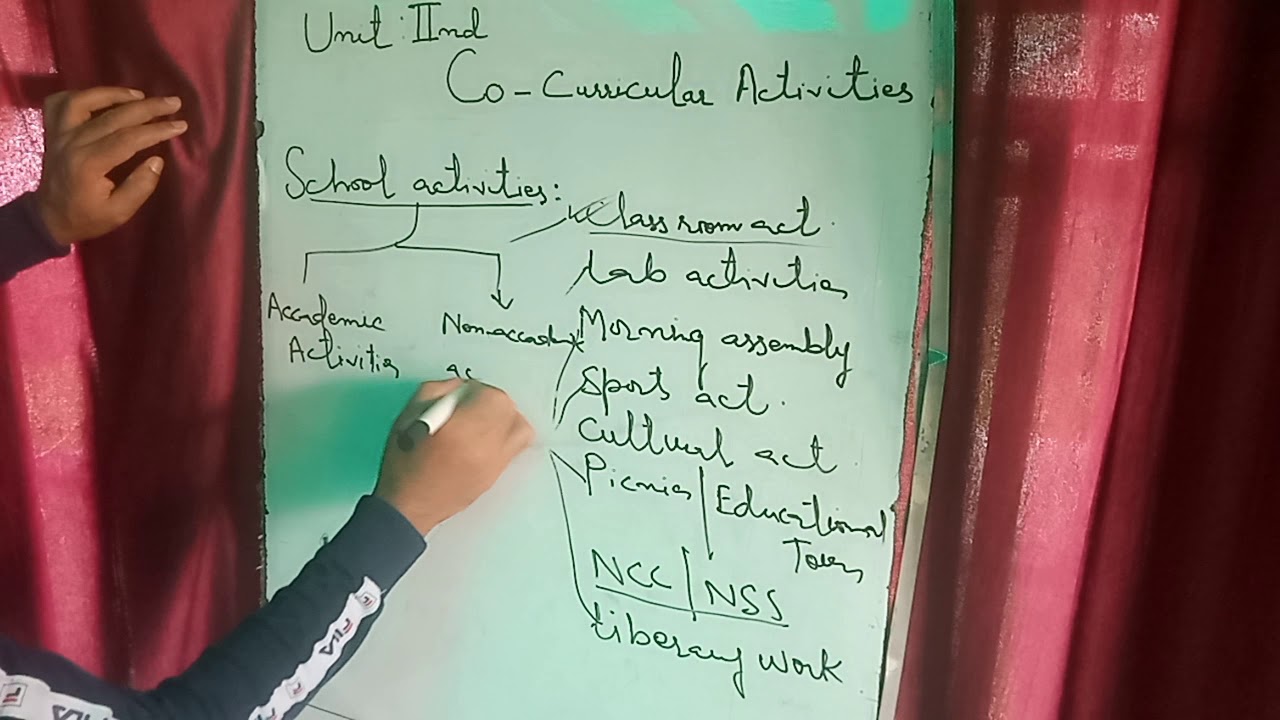 Unit : IInd
Co-Curricular Activities
School activities:
Academic
Activities
Non-accadmic
ac
Classroom act.
Lab activities
Morning assembly
Sports act.
Cultural act
Picnics
Educational
Tours
NCC | NSS
Liberary work
FILA